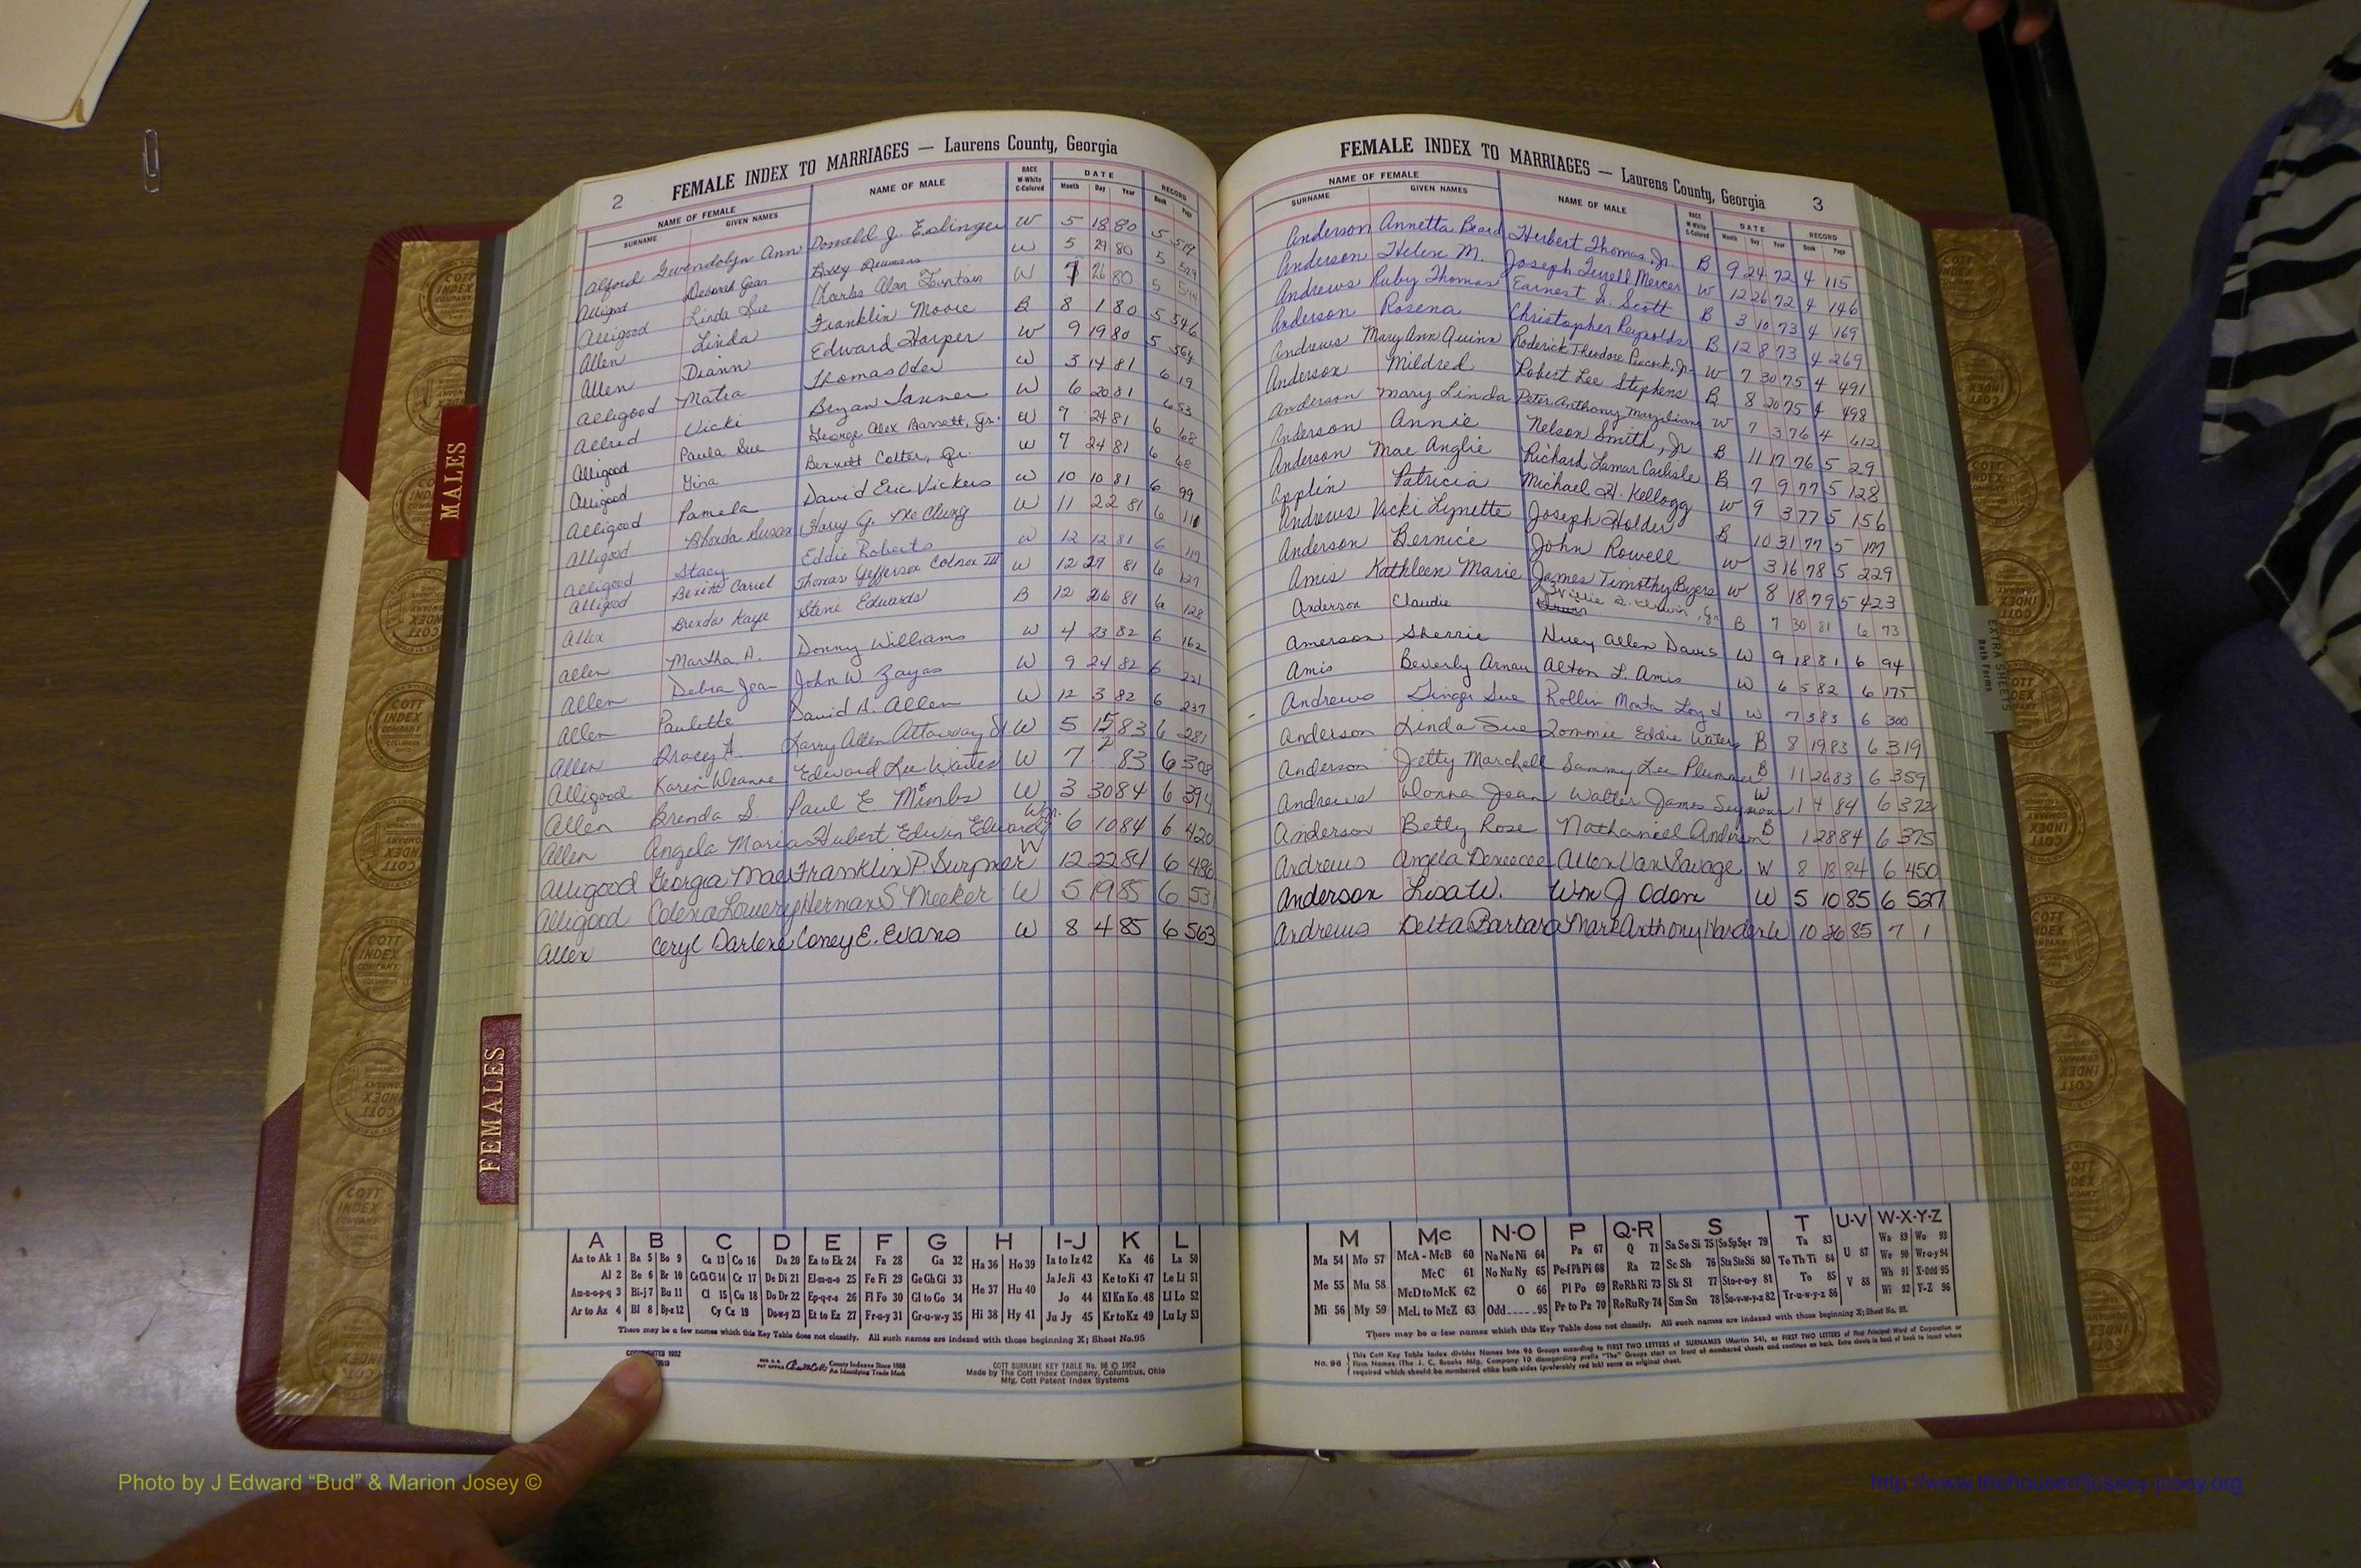 2
FEMALE INDEX TO MARRIAGES — Laurens County, Georgia
NAME OF FEMALE
SURNAME GIVEN NAMES
NAME OF MALE
RACE
W-White
C-Colored
DATE
Month Day Year
RECORD
Book Page
Alford Gwendolyn Ann Donald J. Eslinger W 5 18 80 5 519
Alligood Deborah Jean Bobby W 5 29 80 5 529
Alligood Linda Sue Charles Alan Fountain W 7 26 80 5
Allen Linda Franklin Moore B 8 1 80 5 546
Allen Diann Edward Harper W 9 19 80 5 564
Alligood Matra Thomas Oder W 3 14 81 6 19
Allred Vicki Bryan Tanner W 6 20 81 6 53
Alligood Paula Sue George Alex Barrett, Jr. W 7 24 81 6 68
Alligood Gina Bennett Colter, Jr. W 7 24 81 6 68
Alligood Pamela David Eric Vickers W 10 10 81 6 99
Alligood Rhonda Susan Harry G. McClung W 11 22 81 6 111
Alligood Stacy Eddie Roberts W 12 12 81 6 119
Alligood Benita Carol Thomas Jefferson III W 12 27 81 6 127
Allen Brenda Kaye Steve Edwards B 12 26 81 6 128
Allen Martha A. Donny Williams W 4 23 82 6 162
Allen Debra Jean John W. Zayas W 9 24 82 6 221
Allen Paulette David A. Allen W 12 3 82 6 237
Allen Tracey A. Larry Allen Attaway Jr W 5 15 83 6 281
Alligood Karen Deanne Edward Lee Waites W 7 2 83 6 303
Allen Brenda S. Paul E Mimbs W 3 30 84 6 394
Allen Angela Maria Hubert Edwin Edwards Jr. W 6 10 84 6 420
Alligood Georgia Mae Franklin P Surpner W 12 22 84 6 486
Alligood Colena Lowery Herman S Meeker W 5 19 85 6 53
Allen Ceryl Darlene Coney E. Evans W 8 4 85 6 563
A B C D E F G H I-J K L
Aa to Ak 1 Ba 5 Bo 9 Ca 13 Co 16 Da 20 Ea to Ek 24 Fa 28 Ga 32 Ha 36 Ho 39 Ia to Iz 42 Ka 46 La 50
Al 2 Be 6 Br 10 Ce Ch Ci 14 Cr 17 De Di 21 El-m-n-o 25 Fe Fi 29 Ge Gh Gi 33 He 37 Hu 40 Ja Je Ji 43 Ke to Ki 47 Le Li 51
Am-n-o-p-q 3 Bi-j 7 Bu 11 Cl 15 Cu 18 Do Dr 22 Ep-q-r-s 26 Fl Fo 30 Gl to Go 34 Jo 44 Kl Kn Ko 48 Ll Lo 52
Ar to Az 4 Bl 8 By-z 12 Cy Cz 19 Du-w-y 23 Et to Ez 27 Fr-u-y 31 Gr-u-w-y 35 Hi 38 Hy 41 Ju Jy 45 Kr to Kz 49 Lu Ly 53
There may be a few names which this Key Table does not classify. All such names are indexed with those beginning X; Sheet No.95
COPYRIGHTED 1952
County Indexes Since 1888
An Identifying Trade Mark
COTT SURNAME KEY TABLE No. 96 © 1952
Made by The Cott Index Company, Columbus, Ohio
Mfg. Cott Patent Index Systems
FEMALE INDEX TO MARRIAGES — Laurens County, Georgia
3
NAME OF FEMALE
SURNAME GIVEN NAMES
NAME OF MALE
RACE
W-White
C-Colored
DATE
Month Day Year
RECORD
Book Page
Anderson Annetta Beard Herbert Thomas, Jr. B 9 24 72 4 115
Anderson Helen M. Joseph Terrell Mercer W 12 26 72 4 146
Andrews Ruby Thomas Earnest Jr. Scott B 3 10 73 4 169
Anderson Rosena Christopher Reynolds B 12 8 73 4 269
Andrews Mary Ann Quinn Roderick Theodore Peacock, Jr W 7 30 75 4 491
Anderson Mildred Robert Lee Stephens B 8 20 75 4 498
Anderson Mary Linda Peter Anthony W 7 3 76 4 612
Anderson Annie Nelson Smith, Jr B 11 17 76 5 29
Anderson Mae Anglie Richard Lamar Carlisle B 7 9 77 5 128
Applin Patricia Michael H. Kellogg W 9 3 77 5 156
Andrews Vicki Lynette Joseph Holder B 10 31 77 5 177
Anderson Bernice John Rowell W 3 16 78 5 229
Amis Kathleen Marie James Timothy Byers W 8 18 79 5 423
Anderson Claudie Willie B. Erwin, Jr B 7 30 81 6 73
Amerson Sherrie Huey Allen Davis W 9 18 81 6 94
Amis Beverly Arnau Alton L. Amis W 6 5 82 6 175
Andrews Ginger Sue Rollin Monte Loyd W 7 3 83 6 300
Anderson Linda Sue Tommie Eddie Waters B 8 19 83 6 319
Anderson Jetty Marchell Sammy Lee Plummer B 11 26 83 6 359
Andrews Donna Jean Walter James Seymour W 1 4 84 6 372
Anderson Betty Rose Nathaniel Anderson B 1 28 84 6 375
Andrews Angela Denecee Allen Van Savage W 8 18 84 6 450
Anderson Lisa W. Wm J Odom W 5 10 85 6 527
Andrews Delta Barbara Mark Anthony Harden W 10 26 85 7 1
M Mc N-O P Q-R S T U-V W-X-Y-Z
Ma 54 Mo 57 McA - McB 60 Na Ne Ni 64 Pa 67 Q 71 Sa Se Si 75 So Sp Sq-r 79 Ta 83 U 87 Wa 89 Wo 93
Me 55 Mu 58 McC 61 No Nu Ny 65 Pe-f Ph Pi 68 Ra 72 Sc Sh 76 Sta Ste Sti 80 Te Th Ti 84 We 90 Wr-u-y 94
McD to McK 62 O 66 Pl Po 69 Re Rh Ri 73 Sk Sl 77 Sto-r-u-y 81 To 85 V 88 Wh 91 X-Odd 95
Mi 56 My 59 McL to McZ 63 Odd 95 Pr to Pz 70 Ro Ru Ry 74 Sm Sn 78 Su-v-w-y-z 82 Tr-u-w-y-z 86 Wi 92 Y-Z 96
There may be a few names which this Key Table does not classify. All such names are indexed with those beginning X; Sheet No. 95.
No. 96
This Cott Key Table Index divides Names into 96 Groups according to FIRST TWO LETTERS of SURNAMES (Martin 54), or FIRST TWO LETTERS of First Principal Word of Corporation or
Firm Names (The J. C. Brooks Mfg. Company 10 disregarding prefix "The" Groups start on front of numbered sheets and continue on back. Extra sheets in back of book to insert where
required which should be numbered alike both sides (preferably red ink) same as original sheet.
MALES
FEMALES
EXTRA SHEETS
Both Forms
COTT
INDEX
COMPANY
Photo by J Edward “Bud” & Marion Josey ©
http://www.thehouseofjossey-josey.org